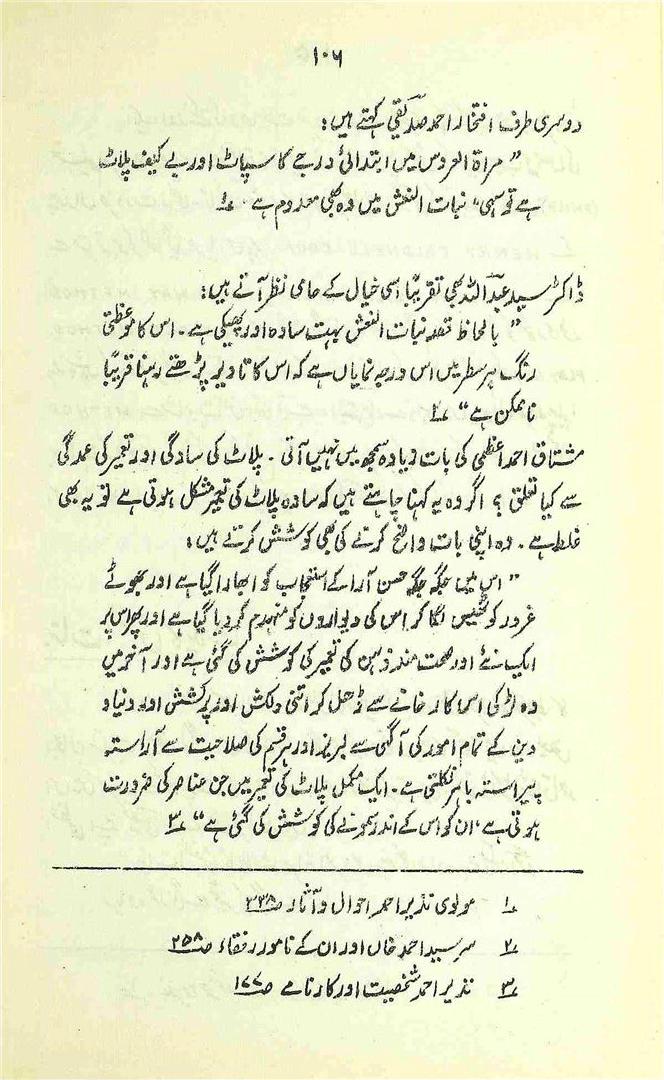 ۱۰۶
دوسری طرف افتخار احمد صدیقی کہتے ہیں:
” مراۃ العروس میں ابتدائی درجے کا سپاٹ اور بے کیف پلاٹ
ہے تو سہی، نبات النعش میں وہ بھی معدوم ہے۔ ۱؎
ڈاکٹر سید عبداللہ بھی تقریبًا اسی خیال کے حامی نظر آتے ہیں:
” بالحاظ قصہ نبات النعش بہت سادہ اور پھیکی ہے۔ اس کا موعظتی
رنگ ہر سطر میں اس درجہ نمایاں ہے کہ اس کا تا دیر پڑھتے رہنا قریبًا
ناممکن ہے “ ۲؎
مشتاق احمد اعظمی کی بات زیادہ سمجھ میں نہیں آتی۔ پلاٹ کی سادگی اور تعمیر کی عمدگی
سے کیا تعلق؟ اگر وہ یہ کہنا چاہتے ہیں کہ سادہ پلاٹ کی تعمیر مشکل ہوتی ہے تو یہ بھی
غلط ہے۔ وہ اپنی بات واضح کرنے کی بھی کوشش کرتے ہیں:
” اس میں جگہ جگہ حسن آرا کے استعجاب کو ابھارا گیا ہے اور جھوٹے
غرور کو ٹھیس لگا کر اس کی دیواروں کو منہدم کر دیا گیا ہے اور پھر اس پر
ایک نئے اور صحت مند ذہن کی تعمیر کی کوشش کی گئی ہے اور آخر میں
وہ لڑکی اس کارخانے سے ڈھل کر اتنی دلکش اور پرکشش اور دنیا و
دین کے تمام امور کی آگہی سے لبریز اور ہر قسم کی صلاحیت سے آراستہ
پیراستہ باہر نکلتی ہے۔ ایک مکمل پلاٹ کی تعمیر میں جن عناصر کی ضرورت
ہوتی ہے، ان کو اس کے اندر سمونے کی کوشش کی گئی ہے “ ۳؎
۱؎ مولوی نذیر احمد احوال و آثار ص ۳۳۸
۲؎ سر سید احمد خاں اور ان کے نامور رفقاء ص ۲۵۸
۳؎ نذیر احمد شخصیت اور کارنامے ص ۱۷۷